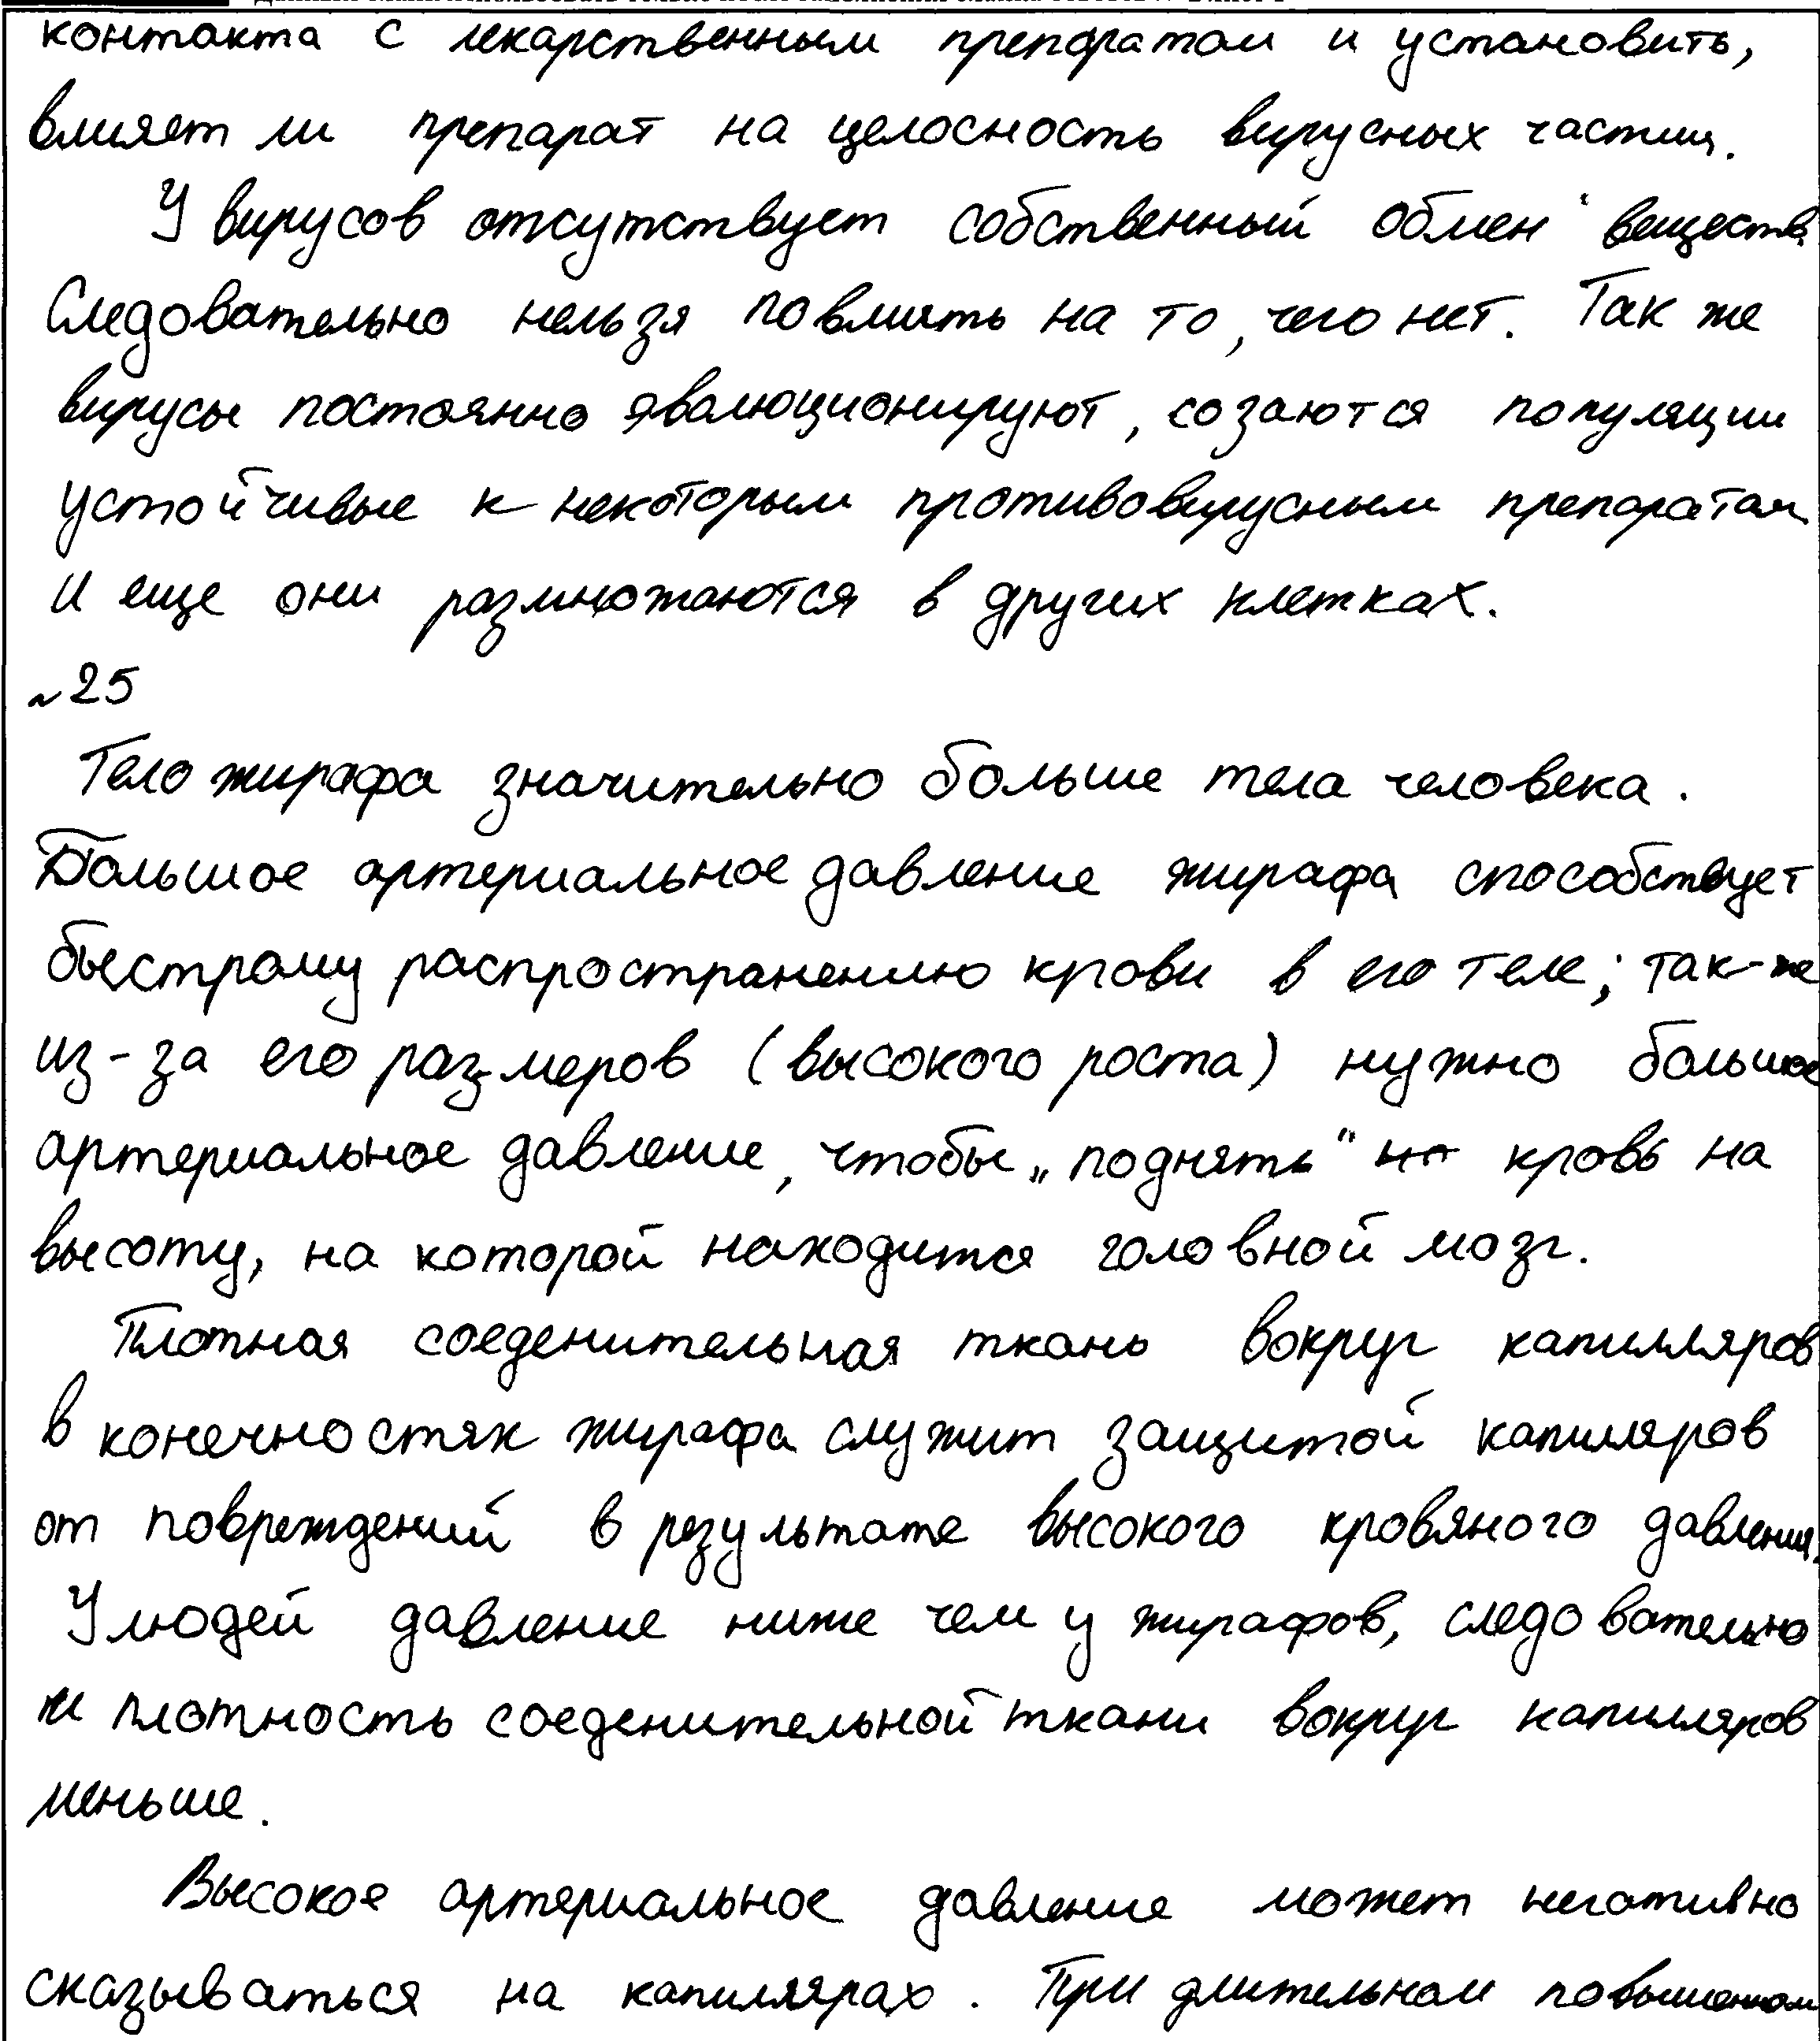 контакта с лекарственным препаратом и установить,
влияет ли препарат на целосность вирусных частиц.
У вирусов отсутствует собственный обмен веществ.
Следовательно нельзя повлиять на то, чего нет. Так же
вирусы постоянно эвалюционируют, созаются популяции
устойчивые к некоторым противовирусным препаратам
И еще они размножаются в других клетках.
~25
Тело жирафа значительно больше тела человека.
Большое артериальное давление жирафа способствует
быстрому распространению крови в его теле; так-же
из-за его размеров (высокого роста) нужно большое
артериальное давление, чтобы „поднять" кровь на
высоту, на которой находится головной мозг.
Плотная соеденительная ткань вокруг капилляров
в конечностях жирафа служит защитой капиляров
от повреждений в результате высокого кровяного давления.
У людей давление ниже чем у жирафов, следовательно
и плотность соеденительной ткани вокруг капилляров
меньше.
Высокое артериальное давление может негативно
сказываться на капиллярах. При длительном повышенном